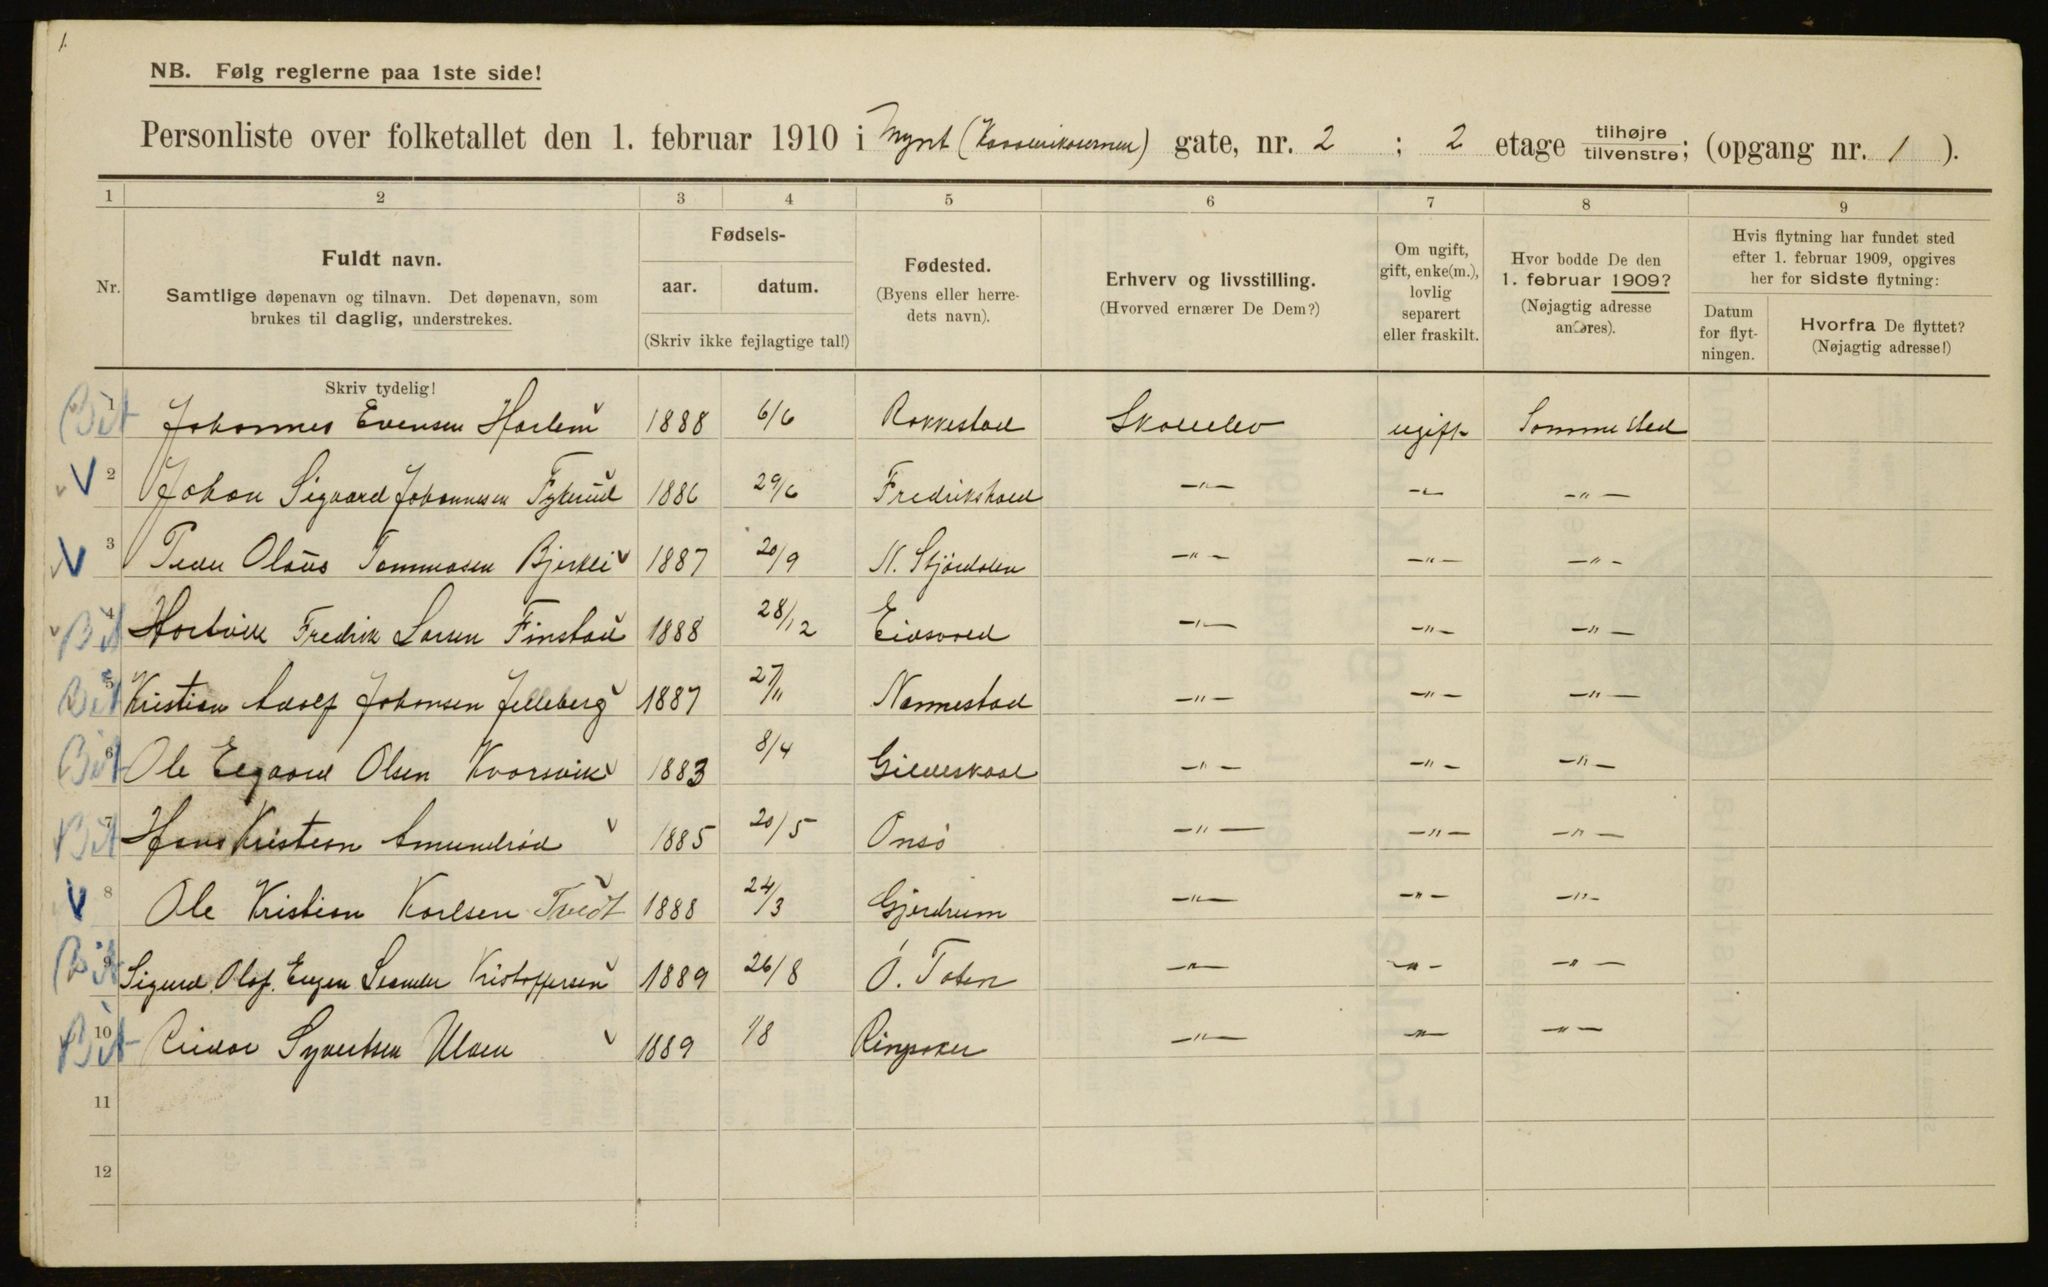 1.
NB. Følg reglerne paa 1ste side!
Personliste over folketallet den 1. februar 1910 i Mynt (      ) gate, nr. 2 ; 2 etage tilhøjre/tilvenstre; (opgang nr. 1 ).
1 2 3 4 5 6 7 8 9
Nr.
Fuldt navn.
Samtlige døpenavn og tilnavn. Det døpenavn, som
brukes til daglig, understrekes.
Skriv tydelig!
Fødsels-
aar. datum.
(Skriv ikke fejlagtige tal!)
Fødested.
(Byens eller herre-
dets navn).
Erhverv og livsstilling.
(Hvorved ernærer De Dem?)
Om ugift,
gift, enke(m.),
lovlig
separert
eller fraskilt.
Hvor bodde De den
1. februar 1909?
(Nøjagtig adresse
anføres).
Hvis flytning har fundet sted
efter 1. februar 1909, opgives
her for sidste flytning:
Datum
for flyt-
ningen.
Hvorfra De flyttet?
(Nøjagtig adresse!)
1 Johannes Evensen Harlem 1888 6/6 Rakkestad Skoleelev ugift Samme sted
2 Johan Sigvard Johannesen 1886 29/6 Fredrikshald —"— —"— —"—
3 Peder Olaus Tommasen Bjerkli 1887 20/9 N. Stjördalen —"— —"— —"—
4 Hartvik Fredrik Larsen Finstad 1888 28/12 Eidsvold —"— —"— —"—
5 Kristian Adolf Johansen Jelleberg 1887 27/11 Nannestad —"— —"— —"—
6 Ole Edvard Olsen Kvarsvik 1883 8/4 Gildeskaal —"— —"— —"—
7 Hans Kristian Amundrød 1885 20/5 Onsø —"— —"— —"—
8 Ole Kristian Karlsen Tvedt 1888 24/3 Gjerdrum —"— —"— —"—
9 Sigurd Olaf Eugen Leander Kristoffersen 1889 26/8 Ö. Toten —"— —"— —"—
10 Reidar Syvertsen Ulven 1889 1/8 Ringsaker —"— —"— —"—
11
12